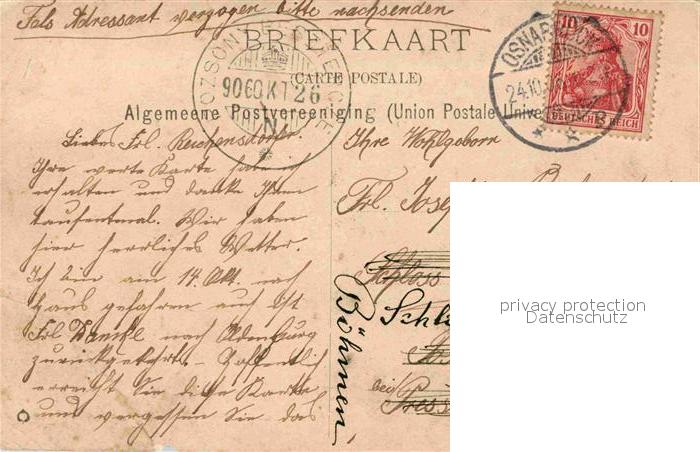 Fals Adressant verzogen bitte nachsenden
BRIEFKAART
(CARTE POSTALE)
Algemeene Postvereeniging (Union Postale Unive
OSNABRÜCK
24.10.
10 10
DEUTSCHES REICH
906OKT26
N
Liebes Frl. Reichensdorfer.
Ihre werte Karte habe ich
erhalten und danke Ihnen
tausentmal. Wir haben
hier herrliches Wetter.
Ich bin am 14 Okt. nach
Haus gefahren auch ist
Frl nach Oldenburg
zurückgekehrt. - Hoffentlich
erreicht Sie diese Karte
und vergessen Sie das
Ihre Wohlgeborn
Frl. Josef
Schloss
Schl
bei Press
Böhmen,
privacy protection
Datenschutz